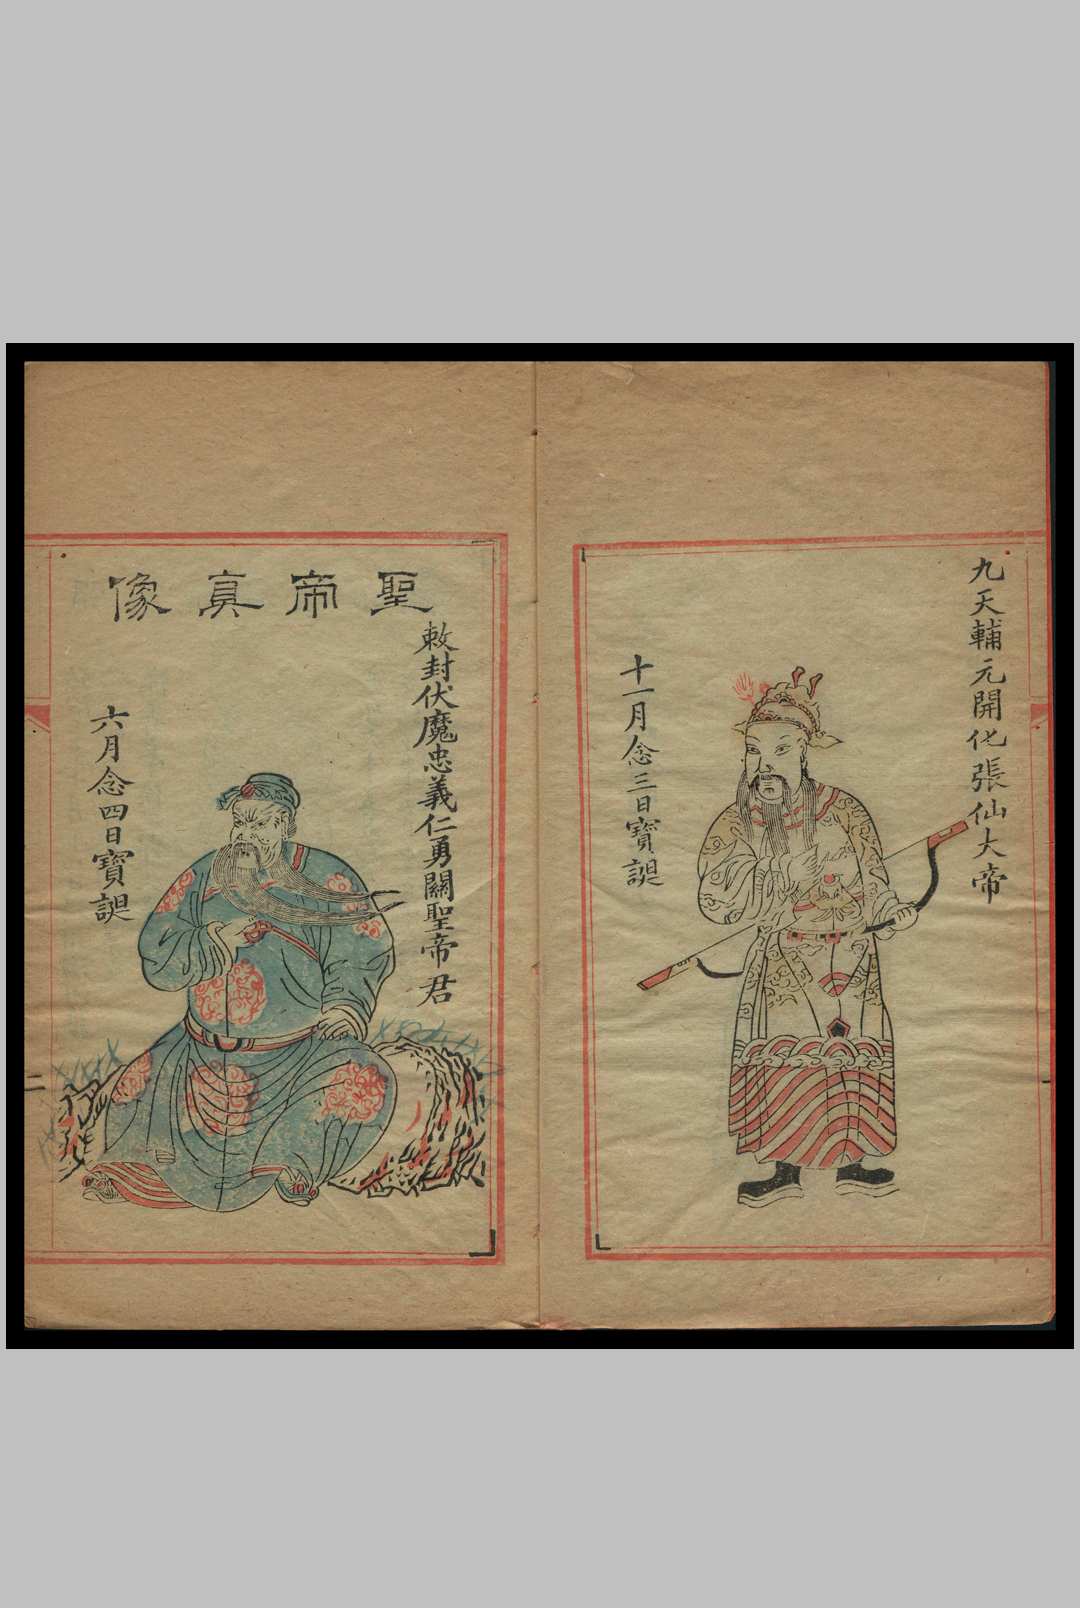 九天輔元開化張仙大帝
十一月念三日寶誕
聖帝真像
敕封伏魔忠義仁勇關聖帝君
六月念四日寶誕
二